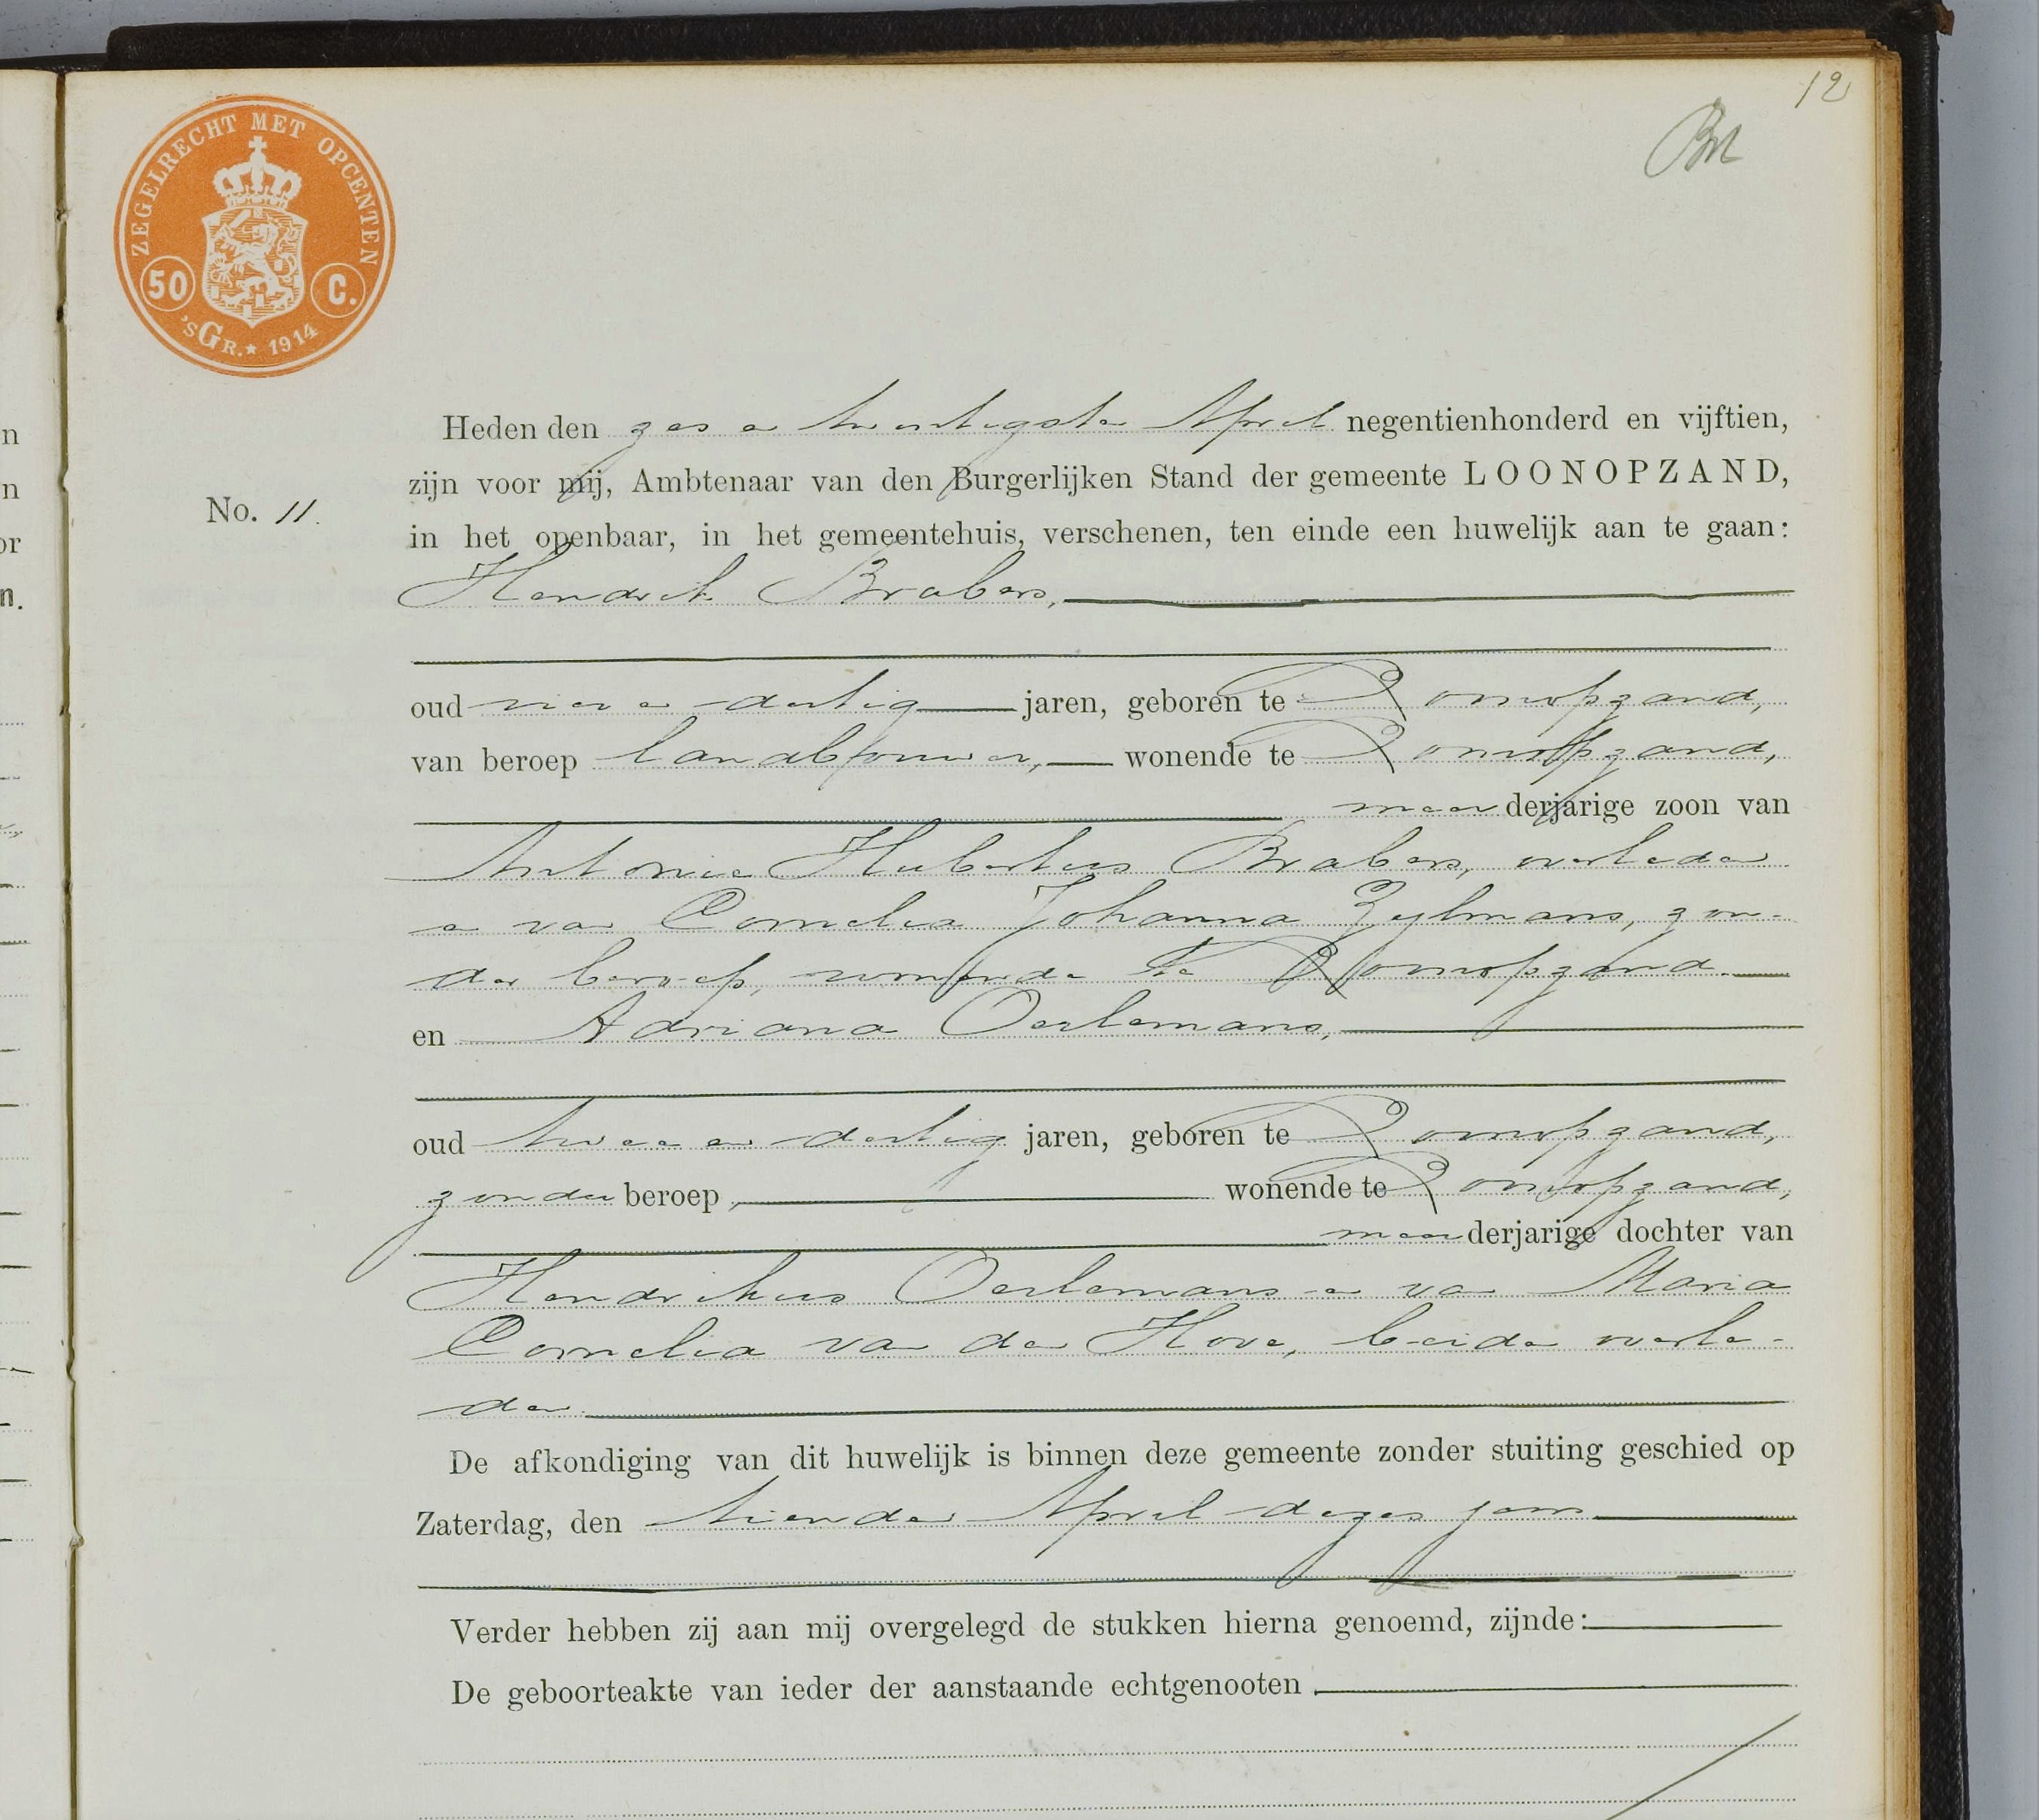 12
Bn
ZEGELRECHT MET OPCENTEN
50 C.
'SGR.★ 1914
Heden den zes en twintigsten April negentienhonderd en vijftien,
zijn voor mij, Ambtenaar van den Burgerlijken Stand der gemeente LOONOPZAND,
No. 11.
in het openbaar, in het gemeentehuis, verschenen, ten einde een huwelijk aan te gaan:
Hendrik Brabers,
oud vier en dertig jaren, geboren te Loonopzand,
van beroep landbouwer, wonende te Loonopzand,
meerderjarige zoon van
Antonie Hubertus Brabers, overleden
en van Cornelia Johanna Zylmans, zon-
der beroep, wonende te Loonopzand.
en Adriana Oerlemans,
oud twee en dertig jaren, geboren te Loonopzand,
zonder beroep, wonende te Loonopzand,
meerderjarige dochter van
Hendrikus Oerlemans en van Maria
Cornelia van den Hove, beiden overle-
den.
De afkondiging van dit huwelijk is binnen deze gemeente zonder stuiting geschied op
Zaterdag, den tienden April dezes jaars
Verder hebben zij aan mij overgelegd de stukken hierna genoemd, zijnde:
De geboorteakte van ieder der aanstaande echtgenooten
n
n
or
n.